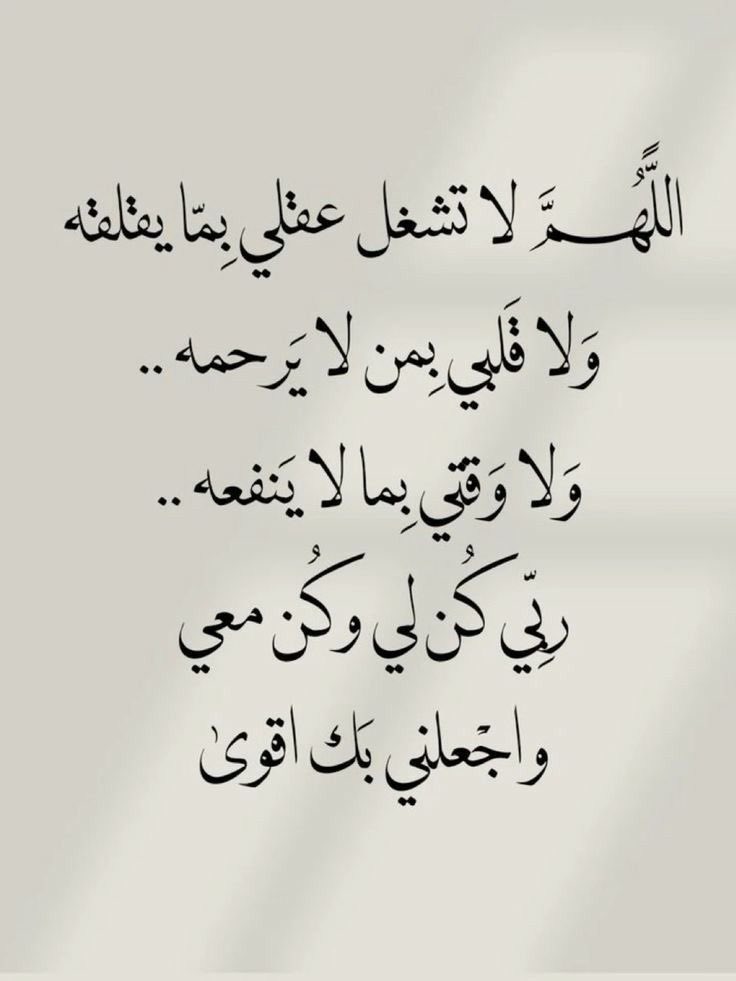 اللَّهُمَّ لا تشغل عقلي بِمّا يقلقه
وَلا قَلبي بِمن لا يَرحمه ..
وَلا وَقتي بِما لا يَنفعه ..
ربِّي كُن لي وكُن معي
واجْعلني بَك اقوىٰ